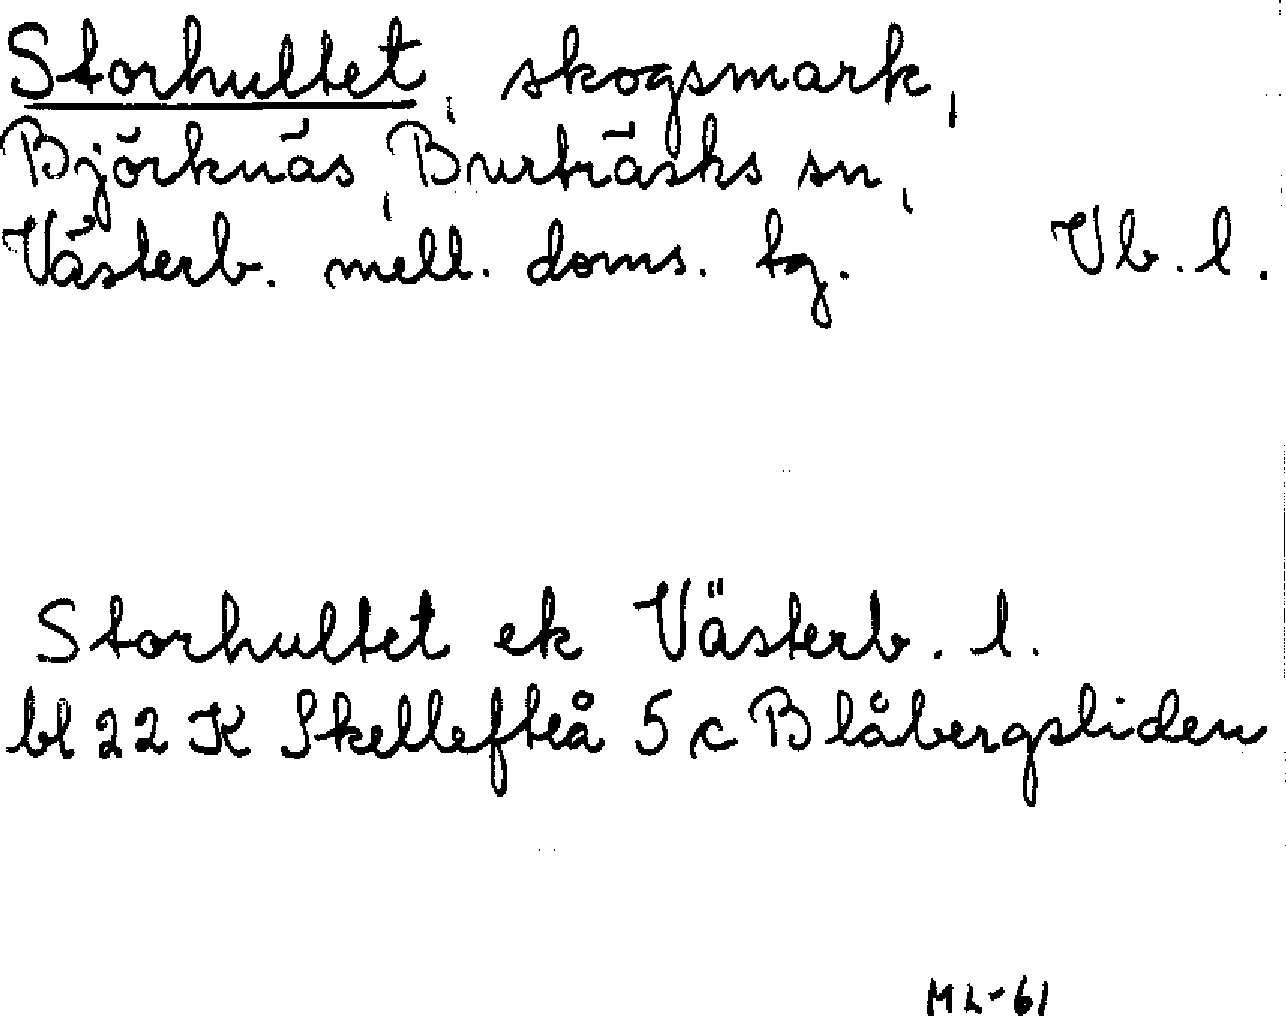 Storhultet, skogsmark,
Björknäs, Burträsks sn,
Västerb. mell. doms. tg. Vb. l.
Storhultet ek Västerb. l.
bl 22 K Skellefteå 5 c Blåbergsliden
ML-61